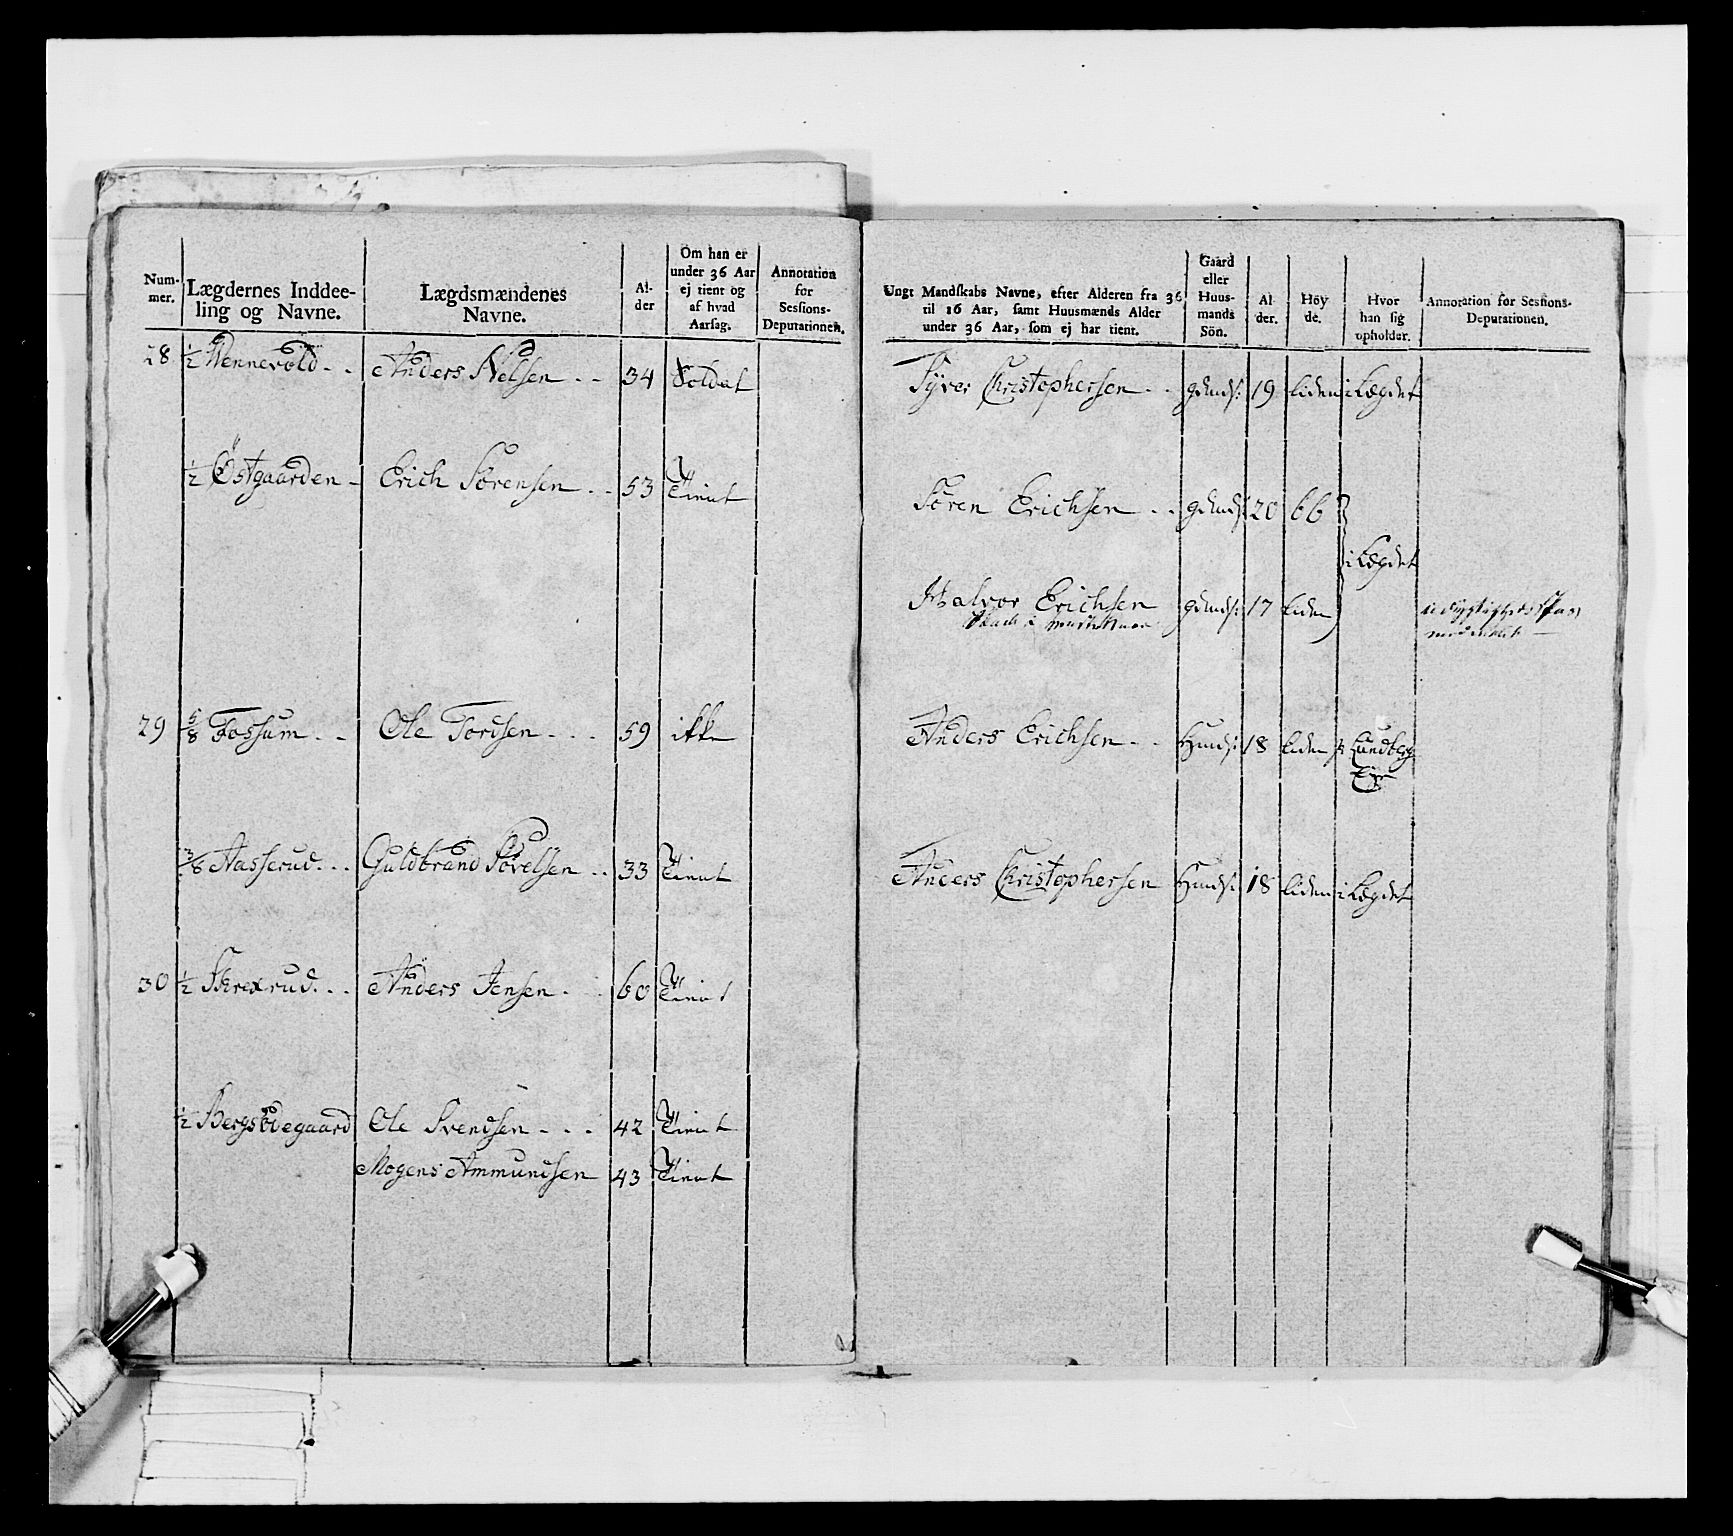 Num-
mer.
Lægdernes Inddee-
ling og Navne.
Lægdsmændenes
Navne.
Al-
der
Om han er
under 36 Aar
ej tient og
af hvad
Aarsag.
Annotation
for
Sessions-
Deputationen.
28 1/2 Wennevold - - Anders Nelsen - - 34 Soldat
1/2 Östgaarden - Erich Sörensen - - 53 Tient
29 5/8 Fossum - - Ole Tordsen - - - 59 ikke
3/8 Aasserud - - Guldbrand Povelsen - - 33 Tient
30 1/2 Skrexrud - - Anders Jensen - 60 Tient
1/2 Bergsödegaard Ole Svendsen - - - 42 Tient
Mogens Ammundsen 43 Tient
Ungt Mandskabs Navne, efter Alderen fra 36
til 16 Aar, samt Huusmænds Alder
under 36 Aar, som ej har tient.
Gaard
eller
Huus-
mands
Sön.
Al
der.
Höy
de.
Hvor
han sig
opholder.
Annotation for Sessions-
Deputationen.
Syver Christophersen - - gdmds: 19 liden i Lægdet
Sören Erichsen - - gdmds: 20 66
i Lægdet
Halvor Erichsen gdmds: 17 liden
Anders Erichsen - - Hmds: 18 liden Lundberg
Anders Christophersen Hmds: 18 liden i Lægdet